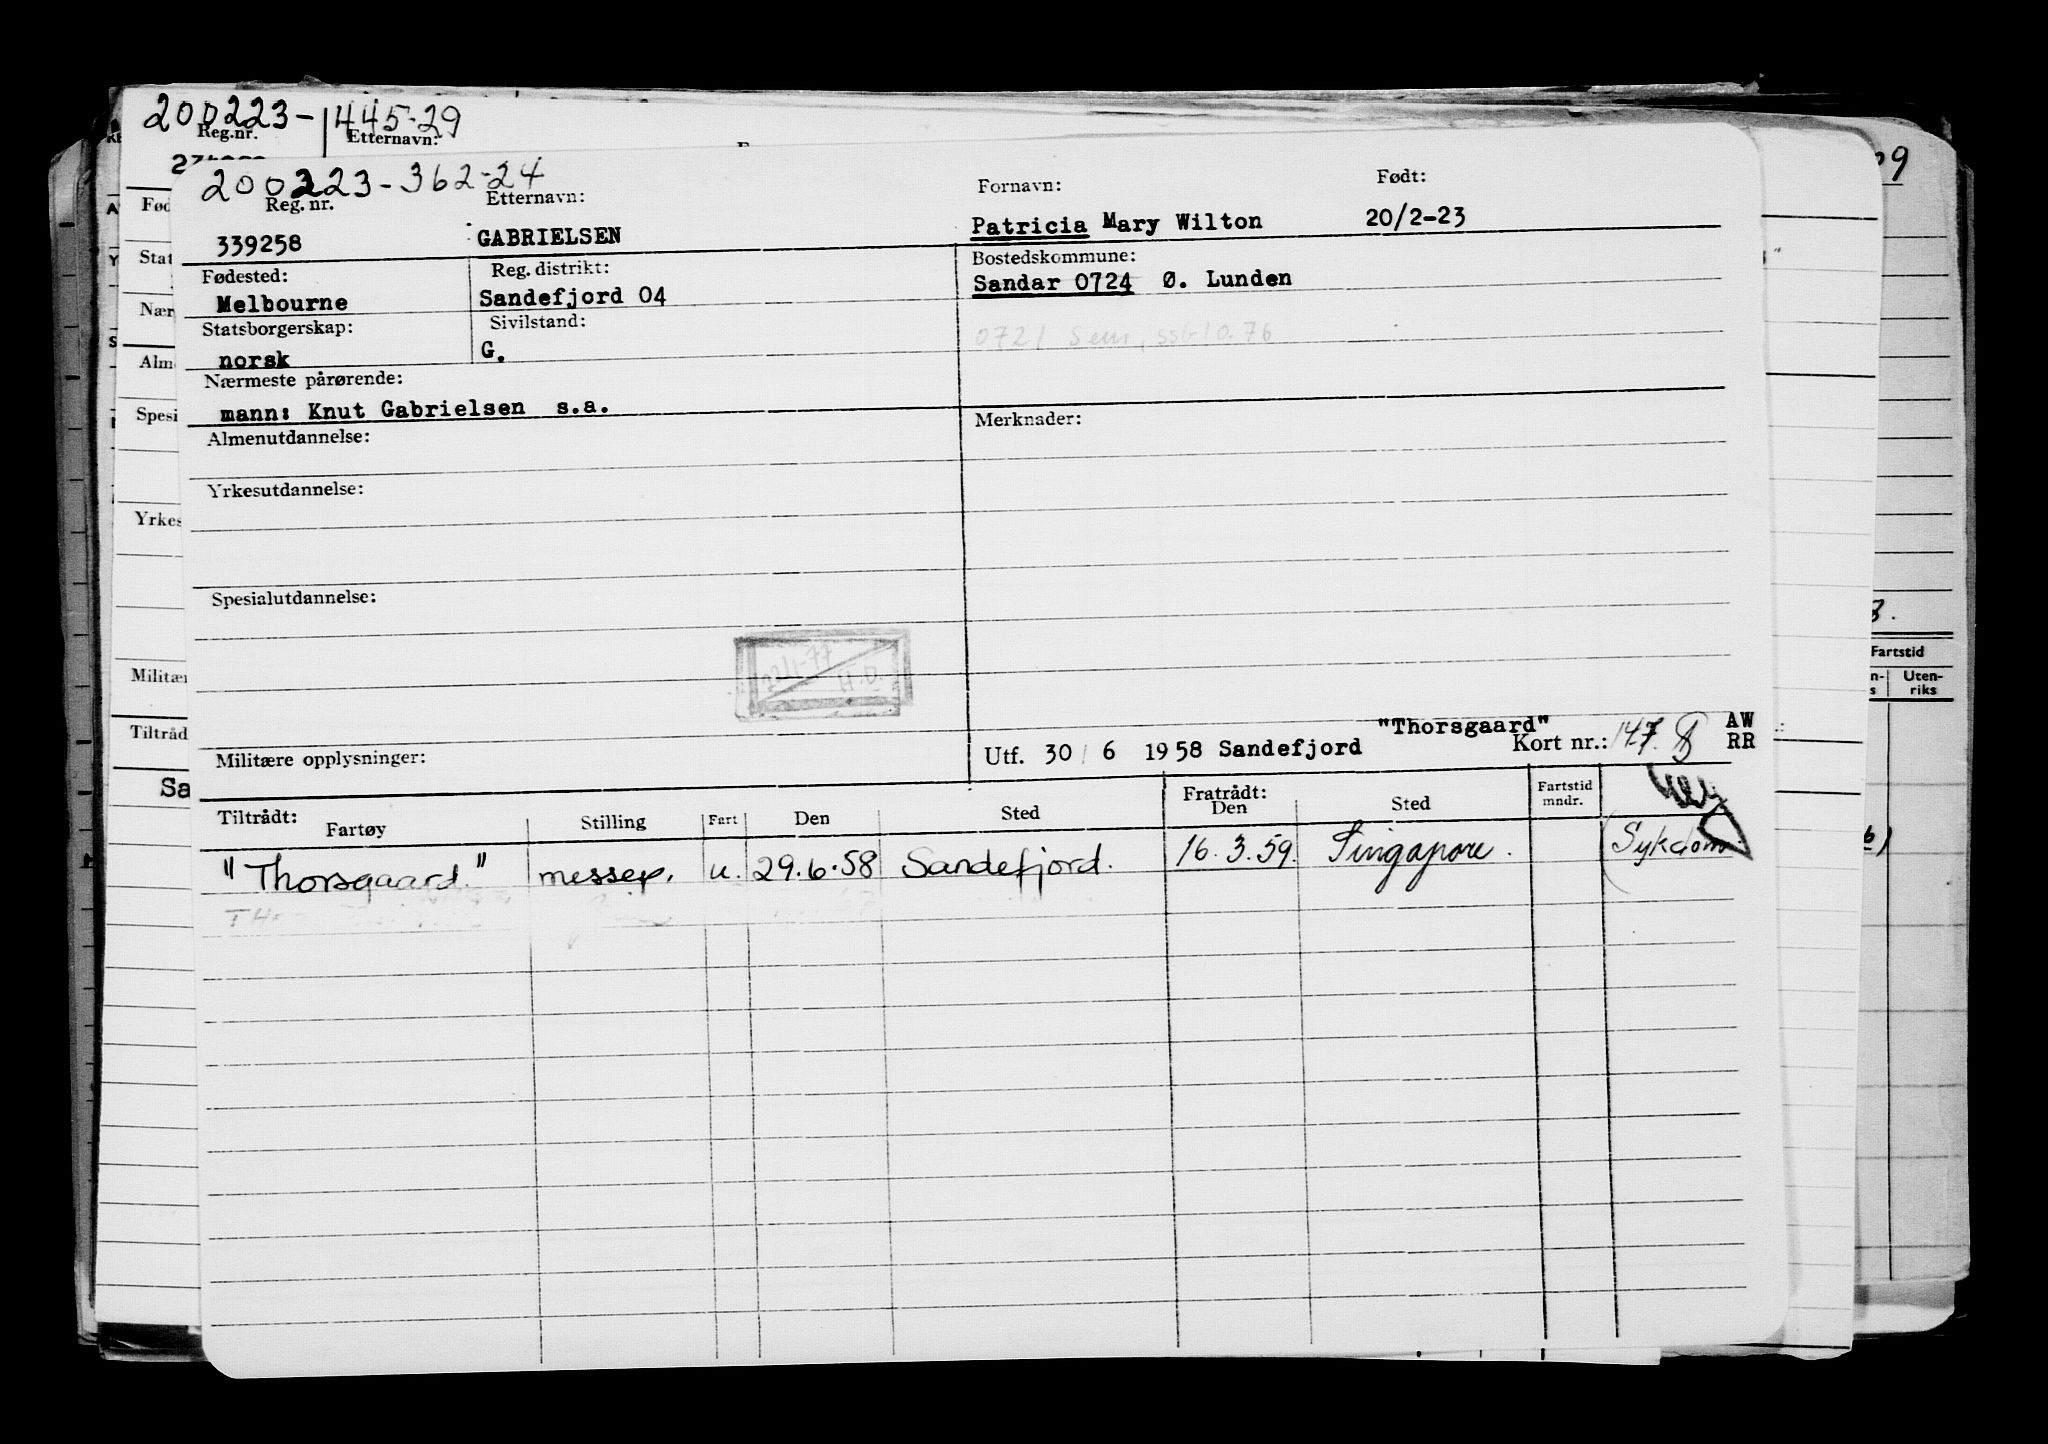 200223-445-29
Reg.nr. Etternavn:
200223-362-24
Reg. nr. Etternavn: Fornavn: Født:
339258 GABRIELSEN Patricia Mary Wilton 20/2-23
Fødested: Reg. distrikt: Bostedskommune:
Melbourne Sandefjord 04 Sandar 0724 Ø. Lunden
Statsborgerskap: Sivilstand:
0721 Sem,
norsk G.
Nærmeste pårørende:
mann: Knut Gabrielsen s.a.
Almenutdannelse: Merknader:
Yrkesutdannelse:
Spesialutdannelse:
22/1-77
H.O.
Militære opplysninger:
"Thorsgaard" AW
Utf. 30/6 1958 Sandefjord Kort nr.: 147. RR
Tiltrådt: Fratrådt:
Fartøy Stilling Fart Den Sted Den Sted Fartstid mndr.
"Thorsgaard." messep. u. 29.6.58 Sandefjord. 16.3.59. Singapore. (Sykdom
Fartstid
Uten-
riks